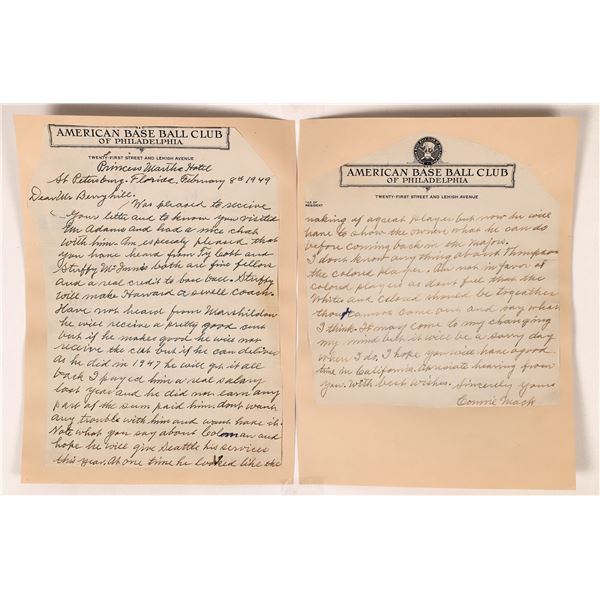 AMERICAN BASE BALL CLUB
OF PHILADELPHIA
TWENTY-FIRST STREET AND LEHIGH AVENUE
Princess Martha Hotel
St Petersburg. Florida. February 8th 1949
Dear Mr Berryhill.
Was pleased to receive
your letter and to know you visited
Mr Adams and had a nice chat
with him. Am especialy pleased that
you have heard from Ty Cobb and
Stuffy McInnis both are fine fellows
and a real credit to base ball. Stuffy
will make Harvard a swell coach.
Have not heard from Marshildon
he will receive a pretty good cut
but if he makes good he will not
receive the cut but if he can deliver
as he did in 1947 he will get it all
back I payed him a real salary
last year and he did not earn any
part of the sum paid him. dont want
any trouble with him and wont have it.
Note what you say about Coleman and
hope he will give Seattle his services
this year. At one time he looked like the
AMERICAN BASE BALL CLUB
OF PHILADELPHIA
TWENTY-FIRST STREET AND LEHIGH AVENUE
OF
PRESIDENT
making of a great player but now he will
have to show the owner what he can do
before coming back in the Majors.
I dont know any thing about Thompson
the colored player. Am not in favor of
colored players as dont feel that the
Whites and Colored should be togeather
though cannot come out and say what
I think. It may come to my changing
my mind but it will be a sorry day
when I do. I hope you will have a good
time in California. Apreciate hearing from
you. With best wishes. Sincerly yours
Connie Mack